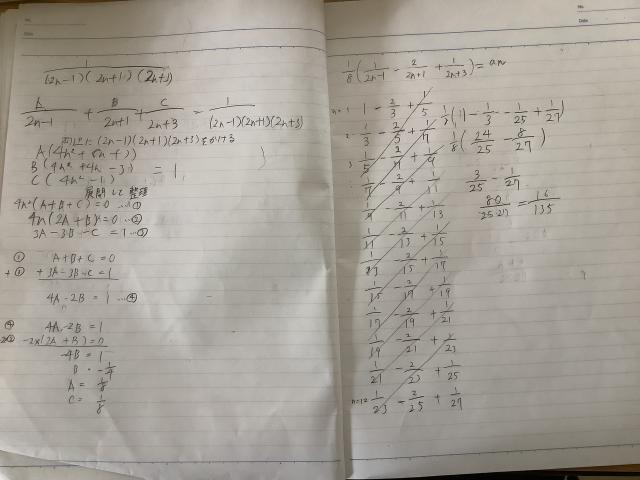 1/((2n-1)(2n+1)(2n+3))
A/(2n-1) + B/(2n+1) + C/(2n+3) = 1/((2n-1)(2n+1)(2n+3))
両辺に(2n-1)(2n+1)(2n+3)をかける
A(4n²+8n+3)
B(4n²+4n-3) = 1
C(4n²-1)
展開して整理
4n²(A+B+C)=0 …①
4n(2A+B)=0 …②
3A-3B-C=1 …③
① A+B+C=0
+③ +3A-3B-C=1
4A-2B=1 …④
④ 4A-2B=1
-2×(2A+B)=0
-4B=1
B=-1/4
A=1/8
C=1/8
1/8(1/(2n-1) - 2/(2n+1) + 1/(2n+3)) = an
n=1 1 - 2/3 + 1/5
2 1/3 - 2/5 + 1/7
3 1/5 - 2/7 + 1/9
1/7 - 2/9 + 1/11
1/9 - 2/11 + 1/13
1/11 - 2/13 + 1/15
1/13 - 2/15 + 1/17
1/15 - 2/17 + 1/19
1/17 - 2/19 + 1/21
1/19 - 2/21 + 1/23
1/21 - 2/23 + 1/25
n=12 1/23 - 2/25 + 1/27
(1 - 1/3 - 1/25 + 1/27)
1/8(24/25 - 8/27)
3/25 - 1/27
= 16/135